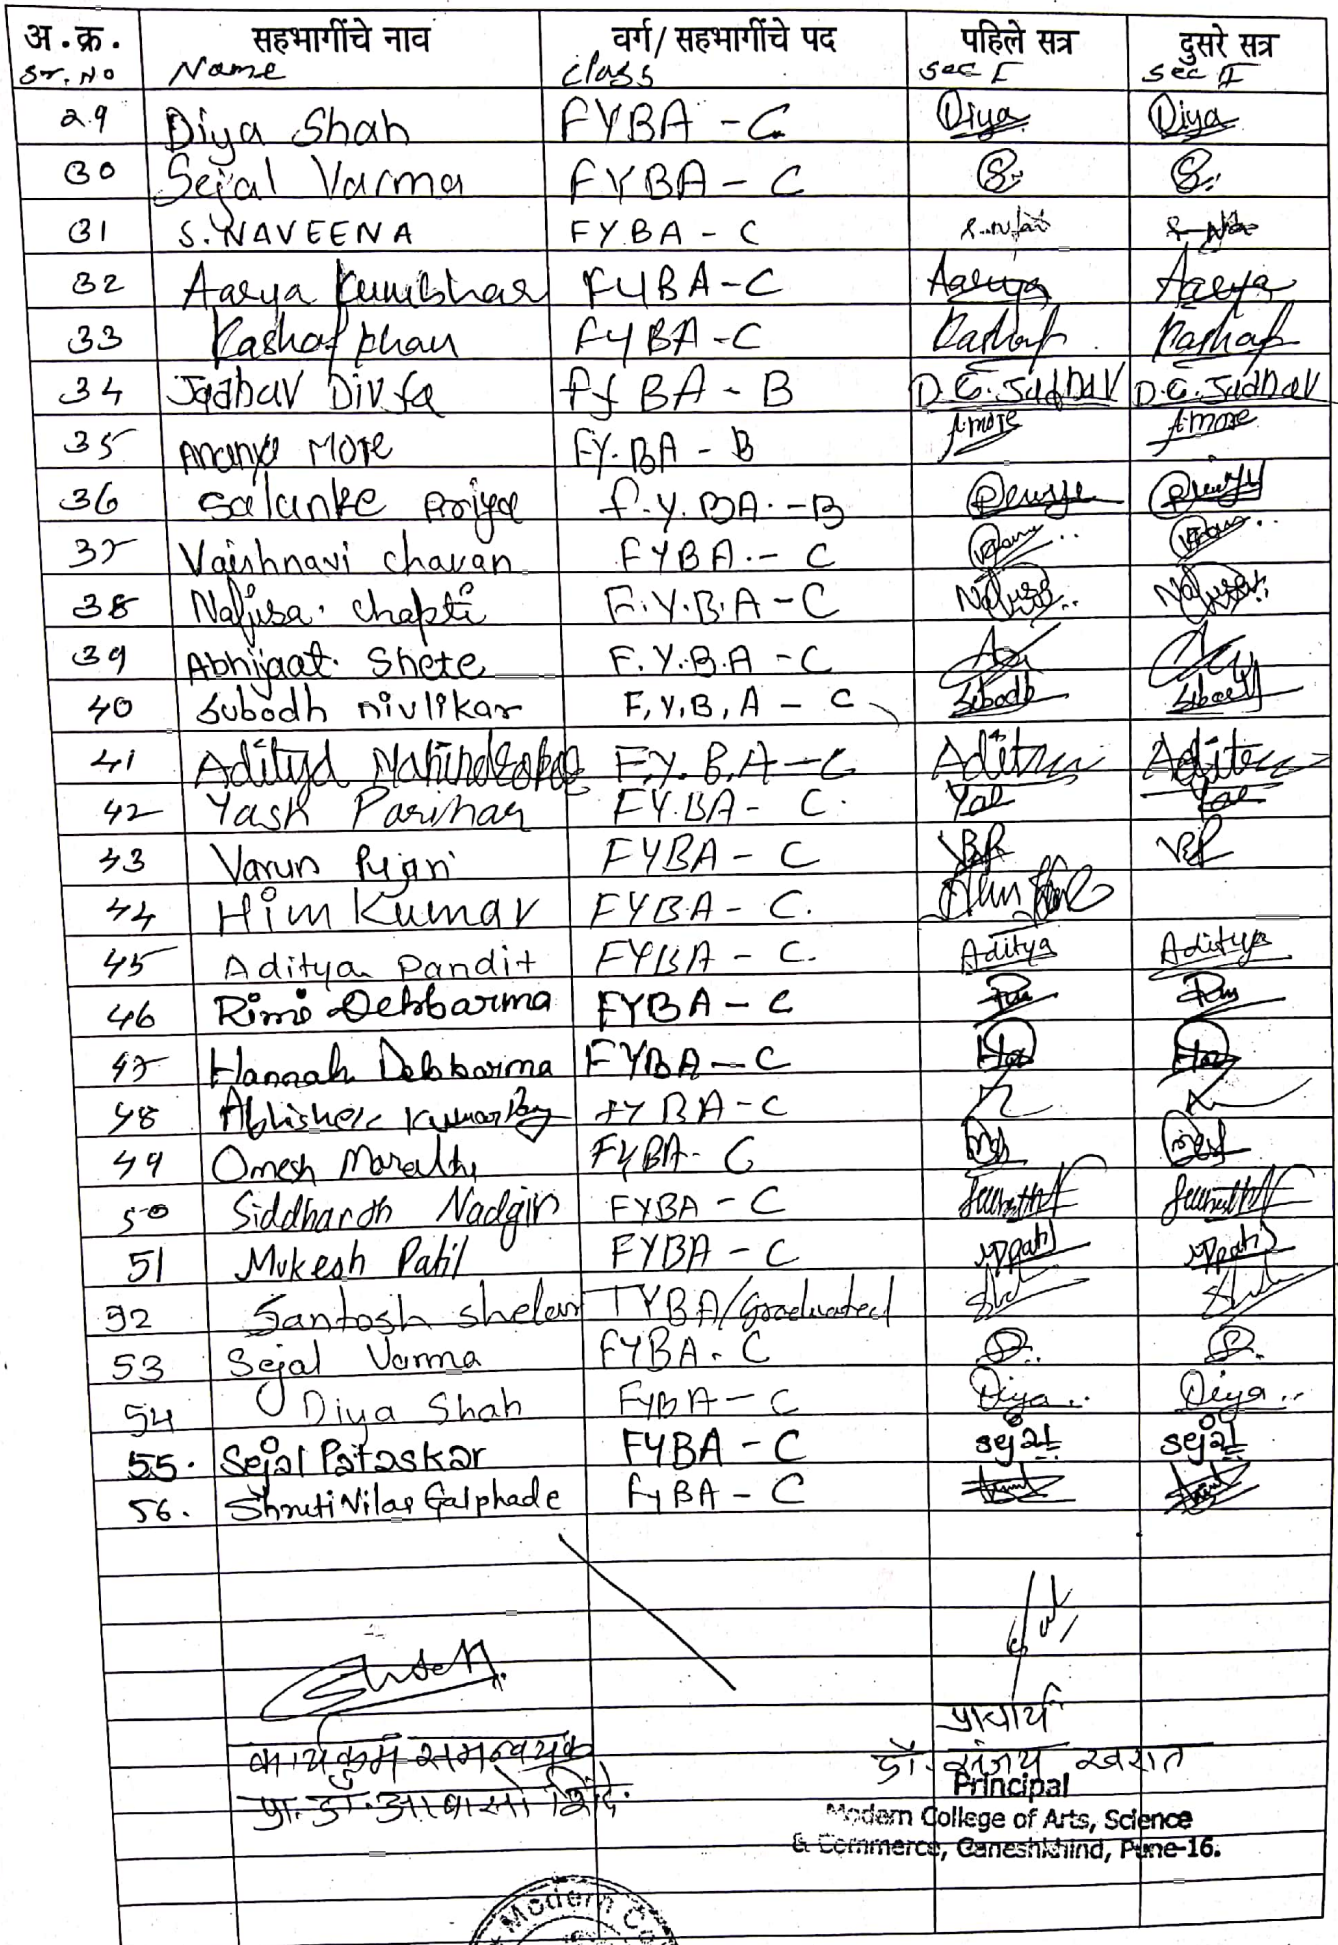 अ.क्र. सहभागींचे नाव वर्ग/सहभागींचे पद पहिले सत्र दुसरे सत्र
Sr. No Name class sec I sec II
29 Diya Shah FYBA - C Diya Diya
30 Sejal Varma FYBA - C S. S.
31 S. NAVEENA FYBA - C
32 Aarya Kumbhar FYBA - C Aarya Aarya
33 Kashaf khan FYBA - C Kashaf Kashaf
34 Jadhav Divya fyBA - B D.C. Jadhav D.C. Jadhav
35 Ananya More FY.BA - B A.more A.more
36 Salunke Priya f.y.BA. - B
37 Vaishnavi chavan FYBA. - C
38 Nafisa. chapti F.Y.B.A - C Nafisa Nafisa
39 Abhijaat. Shete F.Y.B.A - C
40 Subodh nivlikar F,Y,B,A - C Subodh Subodh
41 Aditya F.Y.B.A - C Aditya Aditya
42 Yash Parihar FY.BA - C.
43 Varun Pujari FYBA - C
44 Him Kumar FYBA - C.
45 Aditya Pandit FYBA - C. Aditya Aditya
46 Rimi Debbarma FYBA - C
47 Hannah Debbarma FYBA - C
48 Abhishek Kumar FYBA - C
49 Omesh Marathe FYBA - C
50 Siddharth Nadgiri FYBA - C
51 Mukesh Patil FYBA - C MPatil MPatil
52 Santosh shelar TYBA/Graduated
53 Sejal Varma FYBA. C S. S.
54 Diya Shah FYBA - C Diya.. Diya..
55. Sejal Pataskar FYBA - C sejal sejal
56. Shruti Vilas Galphade FyBA - C
प्राचार्य
कार्यक्रम समन्वयक डॉ. संजय खरात
प्रा. डॉ. आबासो शिंदे. Principal
Modern College of Arts, Science
& Commerce, Ganeshkhind, Pune-16.
Modern Co